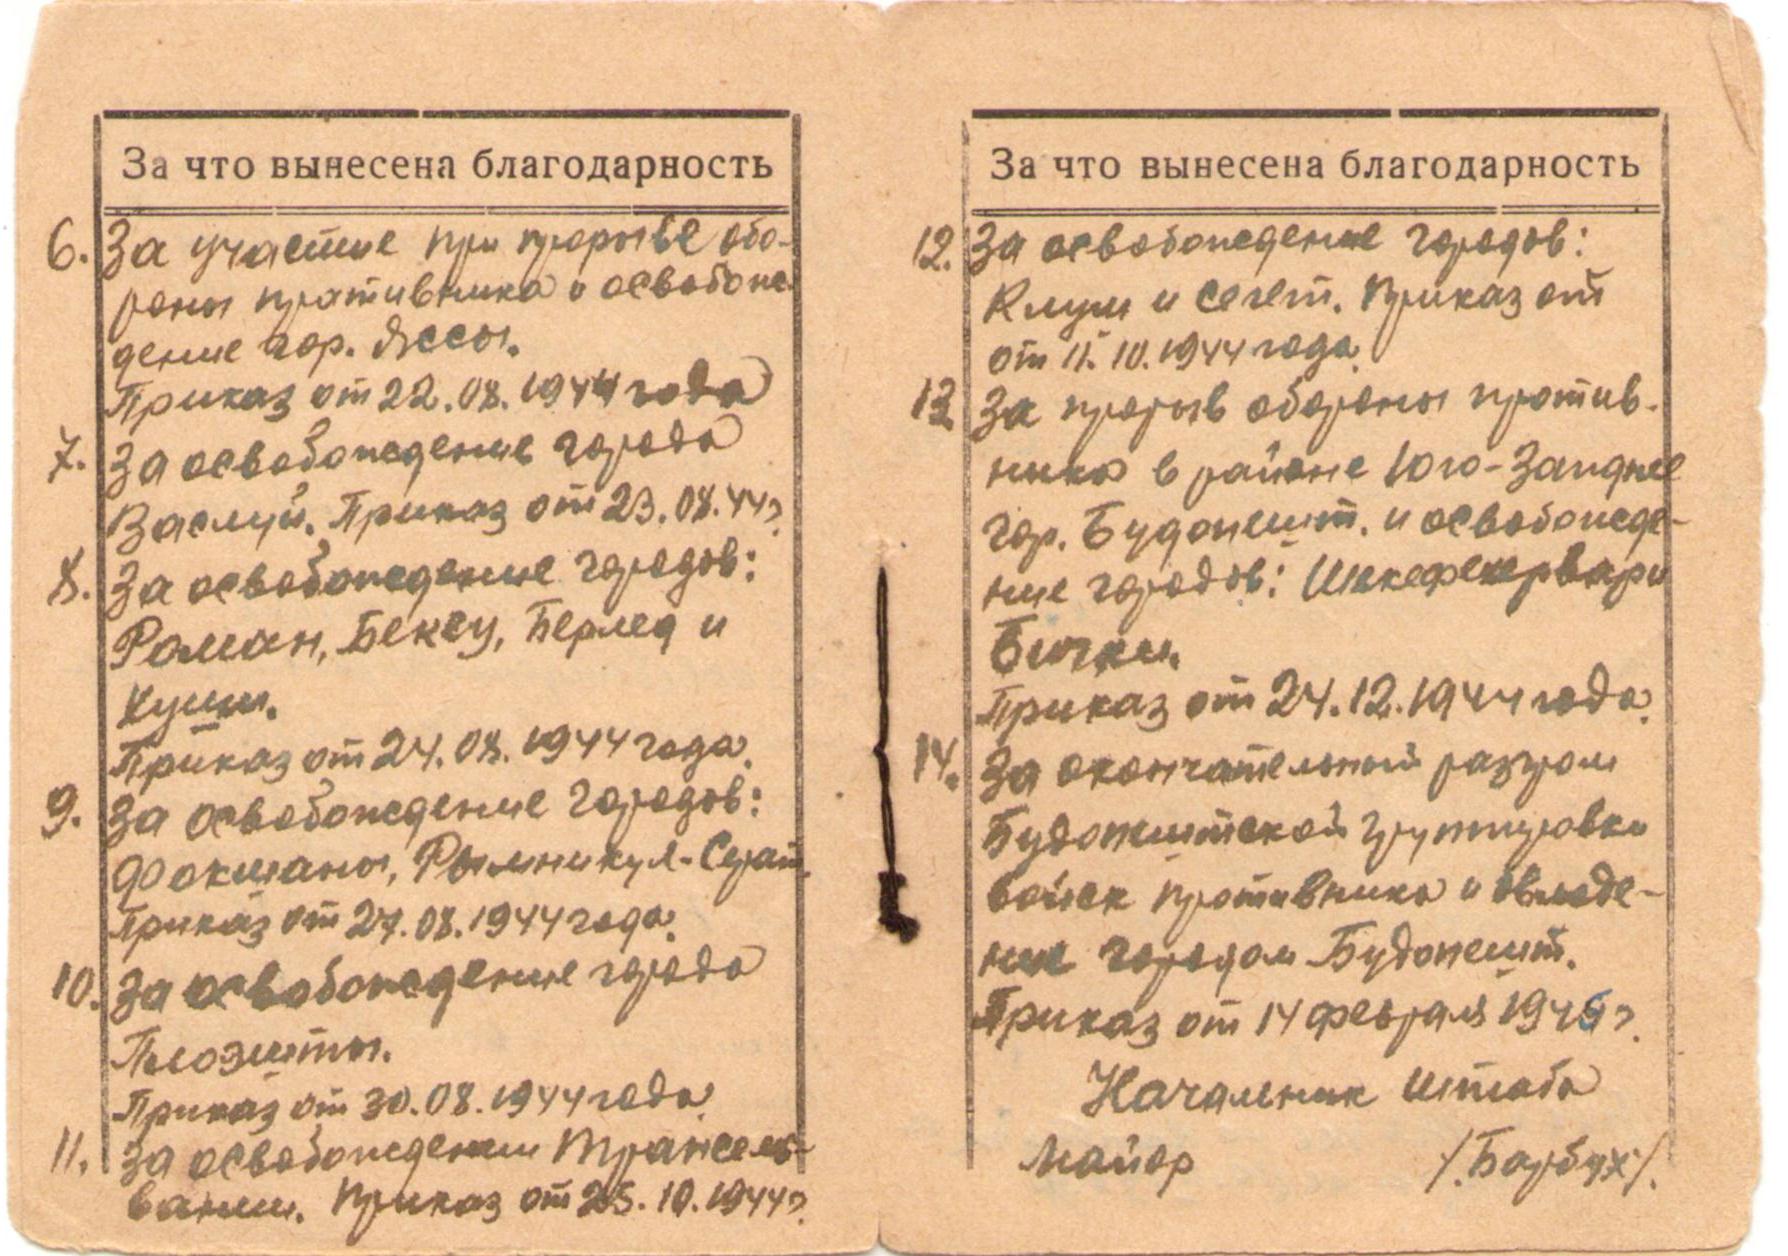 За что вынесена благодарность
6. За участие при прорыве обо-
роны противника и освобож
дение гор. Яссы.
Приказ от 22.08.1944 года
7. За освобождение города
Васлуй. Приказ от 23.08.44 г.
8. За освобождение городов:
Роман, Бекеу, Берлед и
Хуши.
Приказ от 24.08.1944 года.
9. За освобождение городов:
Фокшаны, Рымникул-Серат.
Приказ от 27.08.1944 года.
10. За освобождение города
Плоэшты.
Приказ от 30.08.1944 года
11. За освобождении Трансель-
вании. Приказ от 25.10.1944 г.
За что вынесена благодарность
12. За освобождение городов:
Клуш и Сегет. Приказ от
от 11.10.1944 года.
13. За прорыв обороны против-
ника в районе Юго-Западнее
гор. Будопешт. и освобожде-
ние городов:
Бички.
Приказ от 24.12.1944 года.
14. За окончательный разгром
Будопештской группировки
войск противника и овладе-
ние городом Будопешт.
Приказ от 14 февраля 1945 г.
Начальник штаба
Майор /.Барбух/.